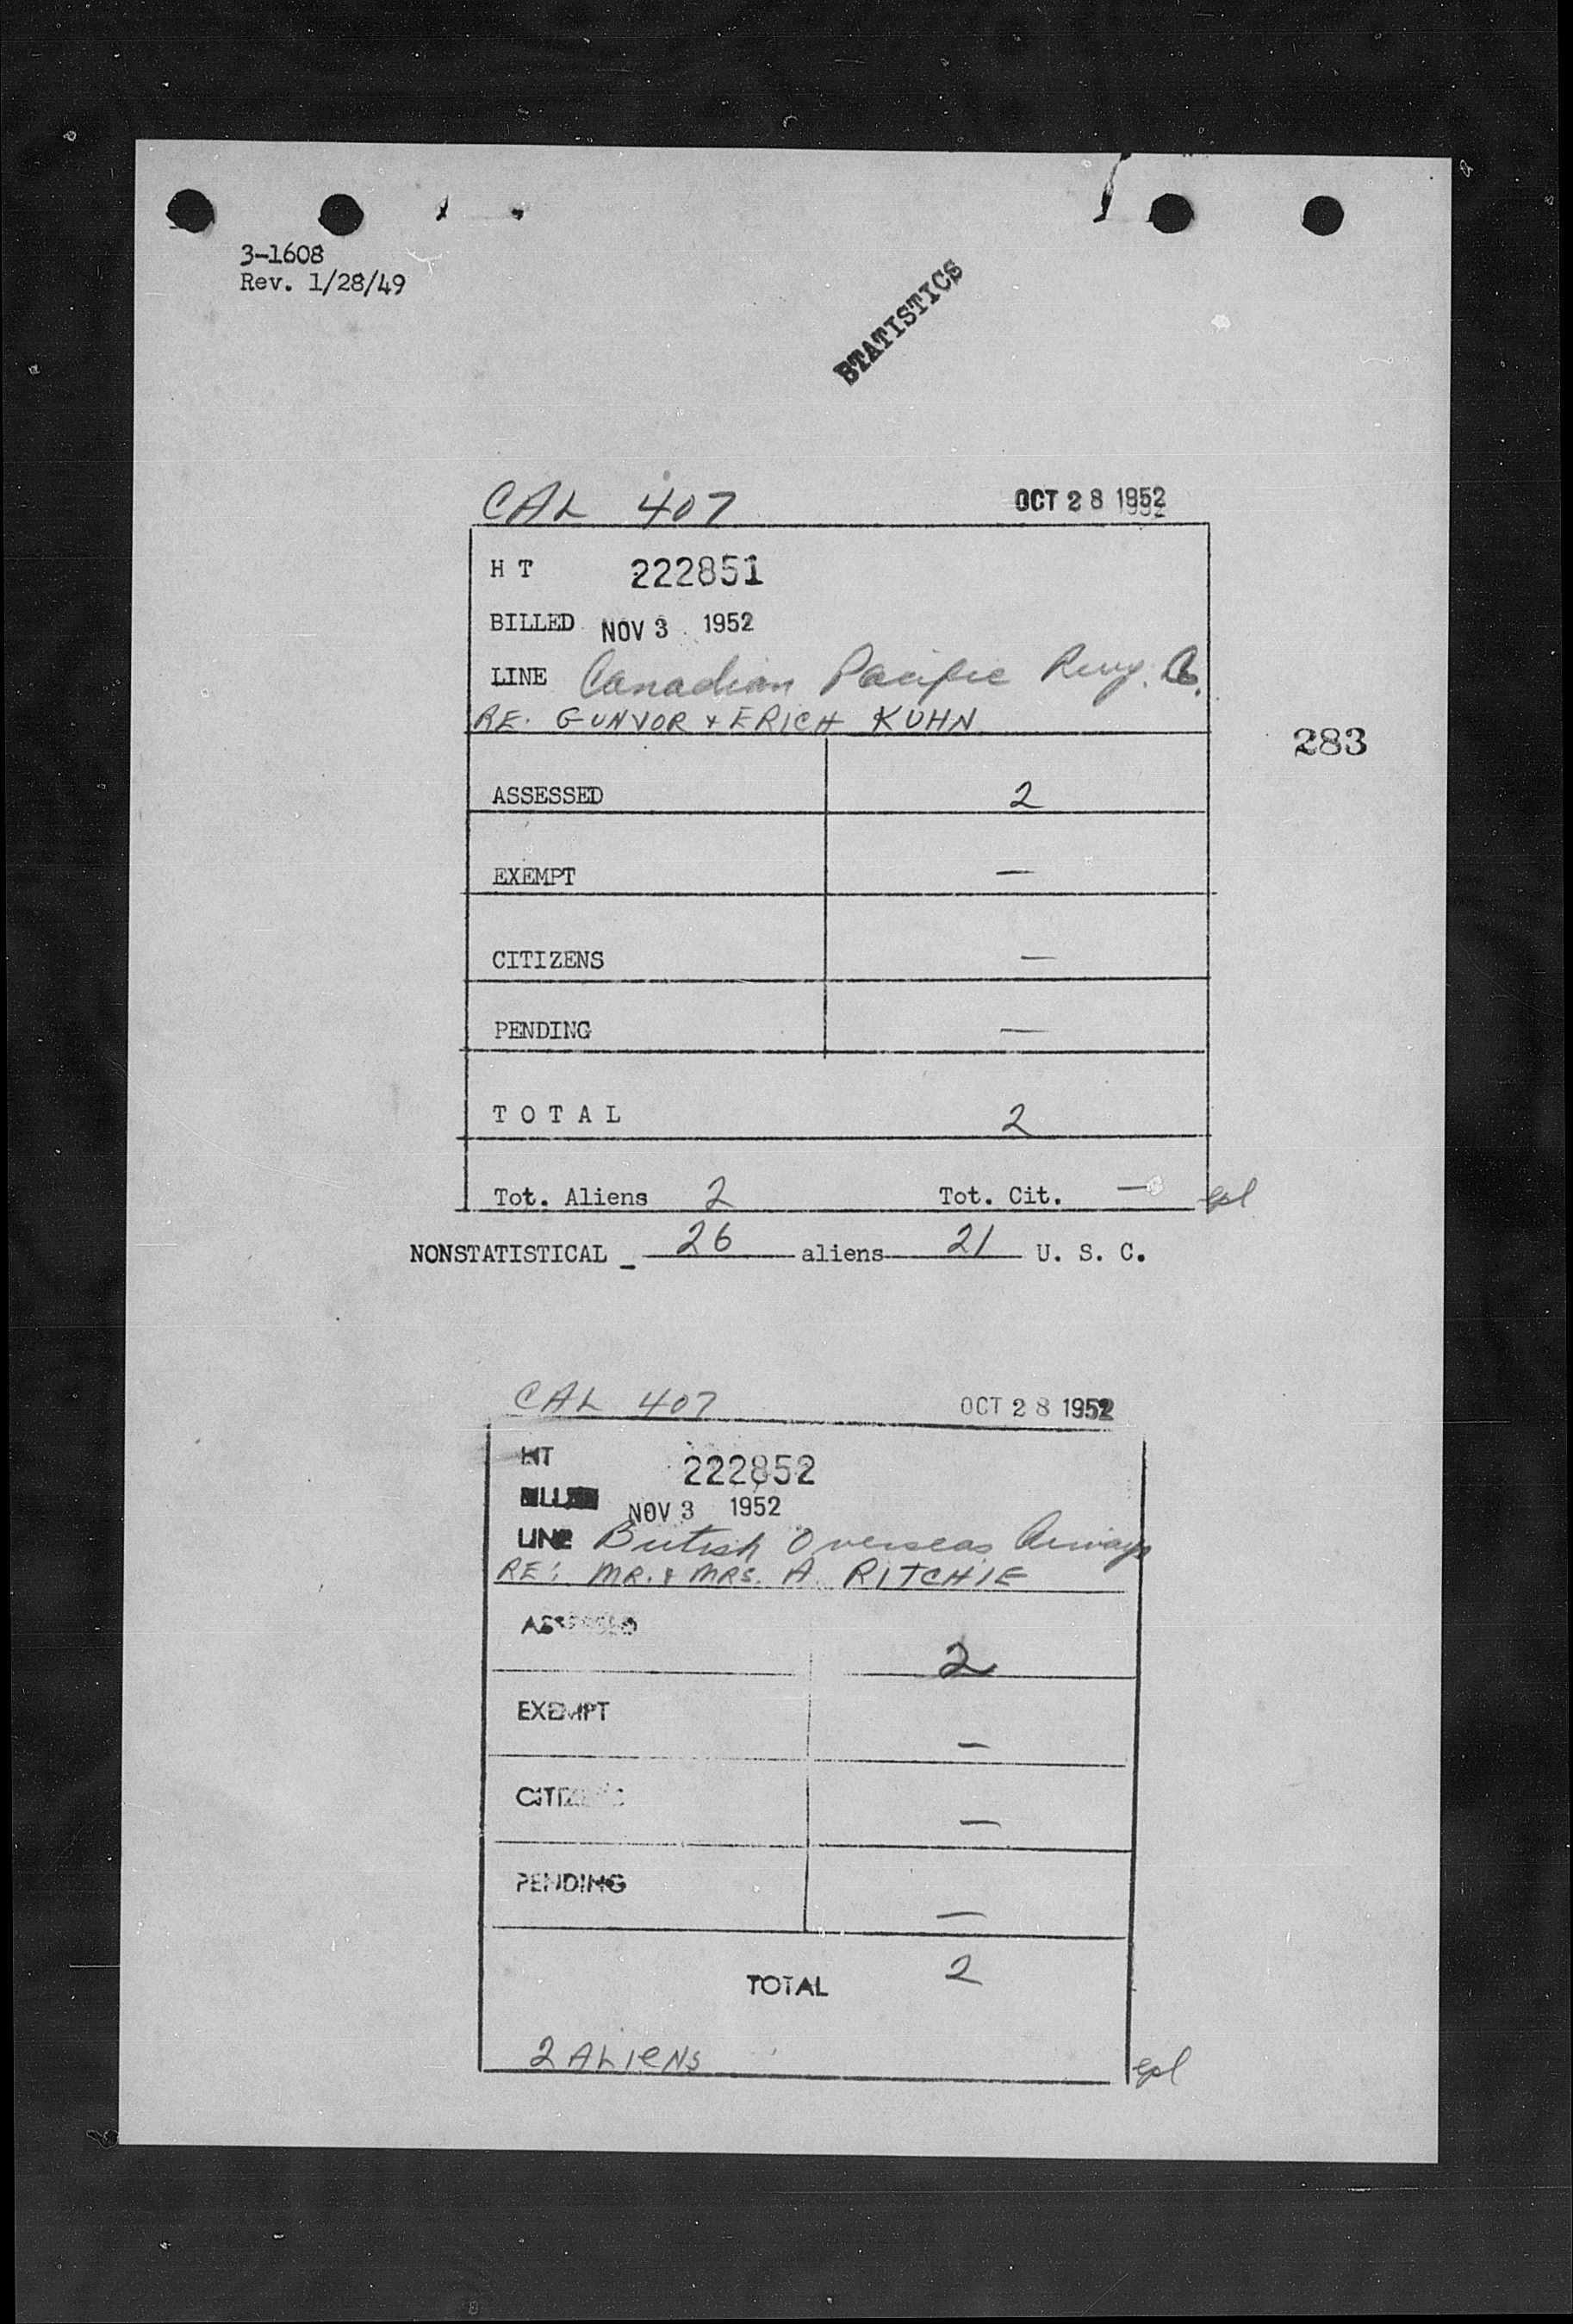 3-1608
Rev. 1/28/49
STATISTICS
CAL 407 OCT 28 1952
H T 222851
BILLED NOV 3 1952
LINE Canadian Pacific Rwy. Co.
RE. GUNVOR + ERICH KUHN
283
ASSESSED 2
EXEMPT —
CITIZENS —
PENDING —
T O T A L 2
Tot. Aliens 2 Tot. Cit. — epl
NONSTATISTICAL _ 26 aliens 21 U. S. C.
CAL 407 OCT 28 1952
HT 222852
BILLED NOV 3 1952
LINE British Overseas Airways
RE: MR. & MRS. A. RITCHIE
ASSESSED 2
EXEMPT —
CITIZENS —
PENDING —
TOTAL 2
2 ALIENS epl